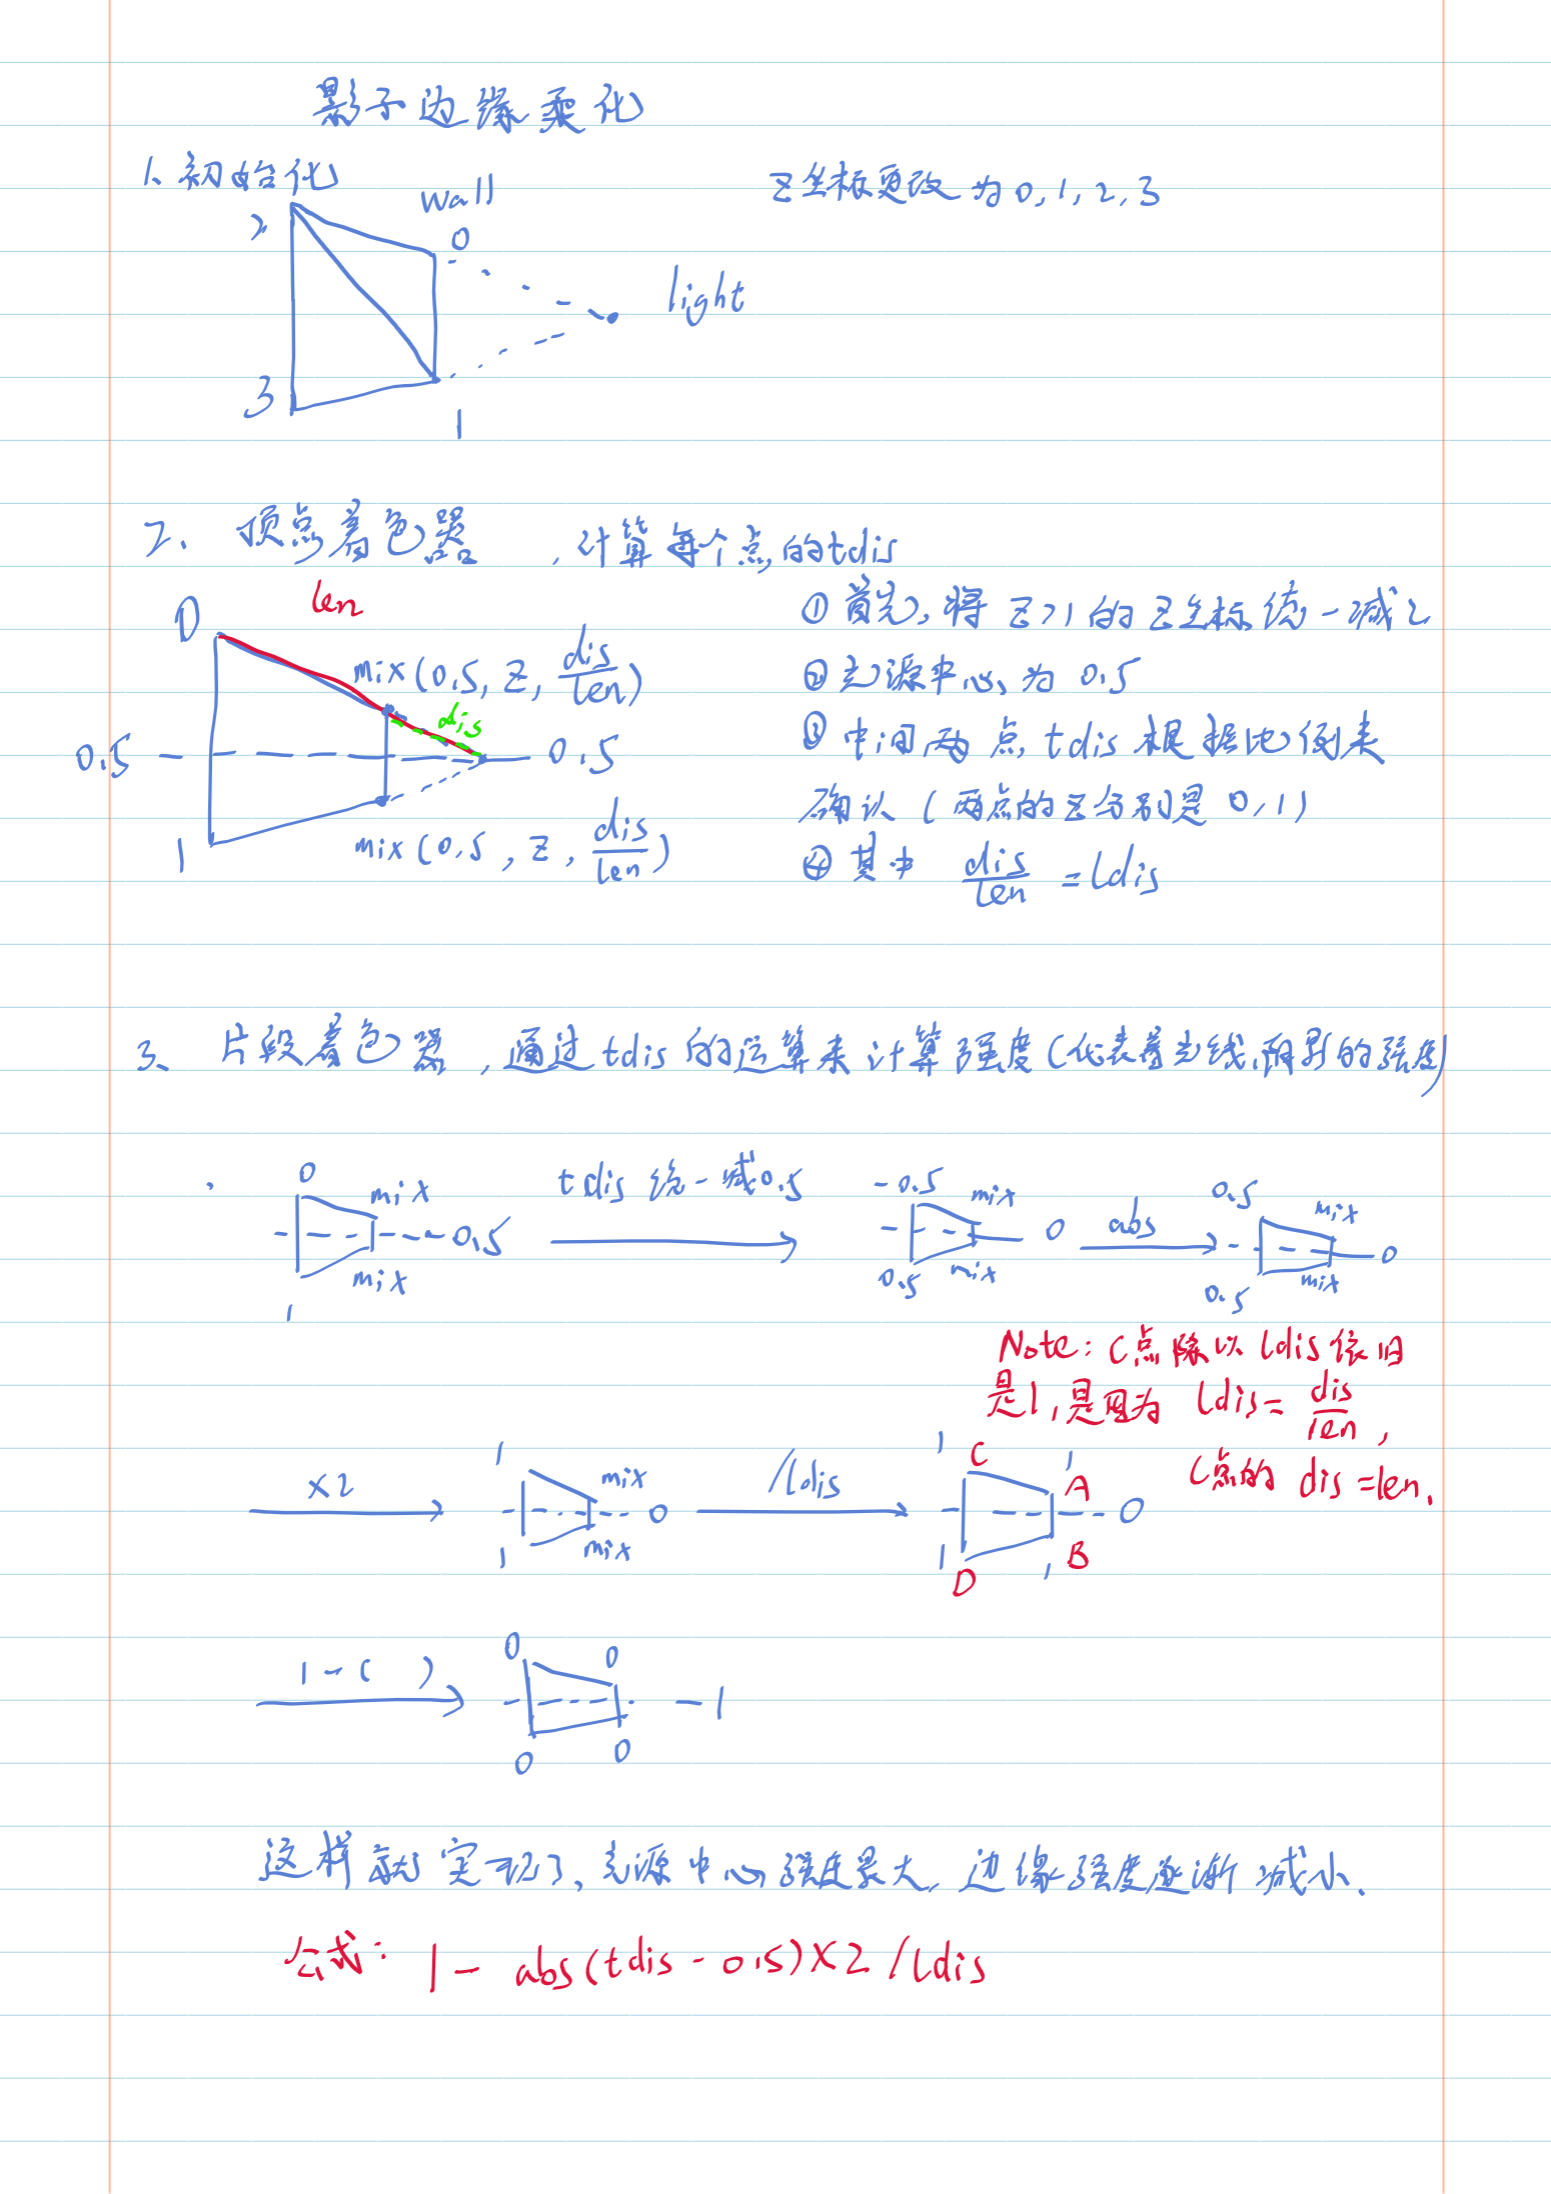 影子边缘柔化
1、初始化
z坐标更改为0,1,2,3
wall
2
0
light
3
1
2、顶点着色器,计算每个点的tdis
len
0
mix(0.5, z, dis/len)
dis
0.5
0.5
1
mix(0.5, z, dis/len)
① 首先,将z>1的z坐标统一减2
②光源中心为0.5
③中间两点,tdis根据比例来
确认(两点的z分别是0,1)
④其中 dis/len = ldis
3、片段着色器,通过tdis的运算来计算强度(代表着光线,阴影的强度)
0
mix
0.5
mix
1
tdis统一减0.5
-0.5
mix
0
0.5
mix
abs
0.5
mix
0
0.5
mix
Note: C点除以ldis依旧
是1,是因为 ldis = dis/len,
C点的 dis = len.
×2
1
mix
0
1
mix
/ldis
1
C
1
A
0
1
D
1
B
1-( )
0
0
1
0
0
这样就实现了,光源中心强度最大,边缘强度逐渐减小.
公式: 1 - abs(tdis - 0.5)×2 /ldis